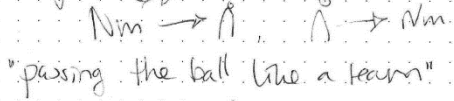 Nm → Å, Å → Nm
"passing the ball like a team"